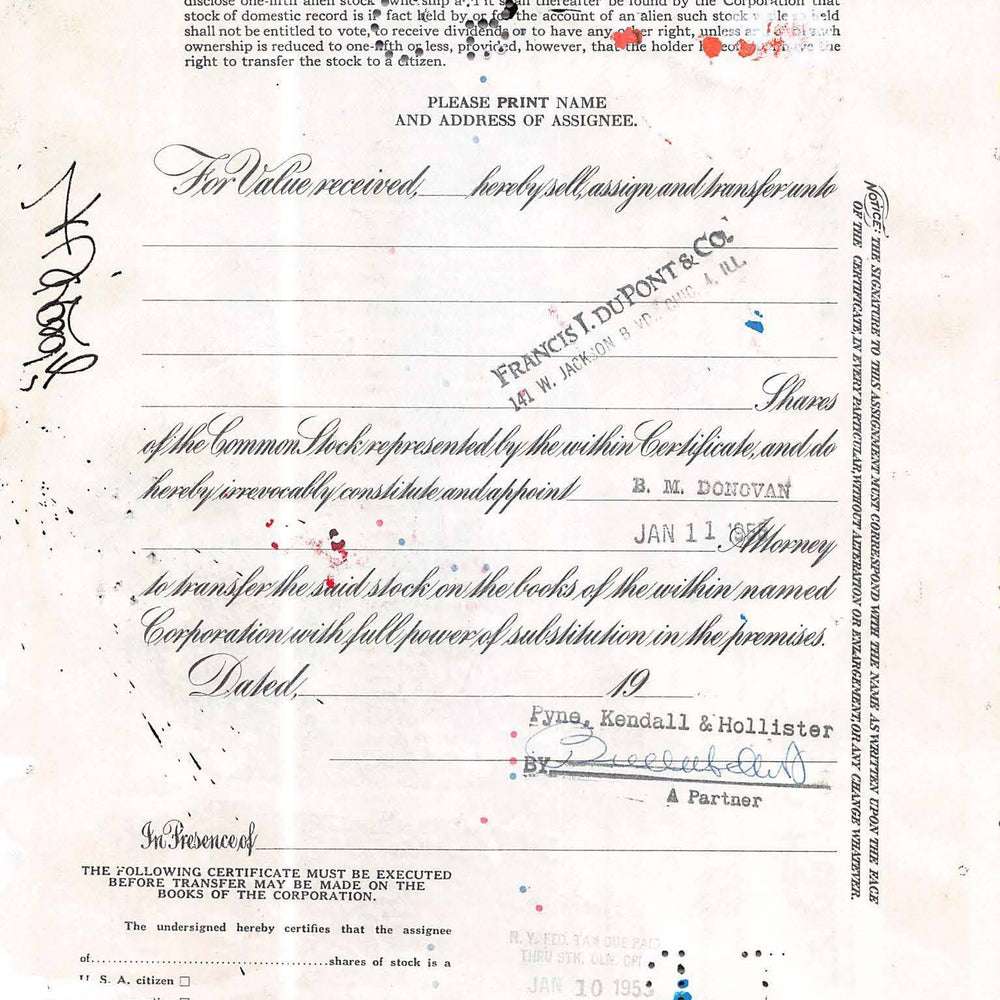 stock of domestic record is in fact held by or for the account of an alien such stock held
shall not be entitled to vote, to receive dividends or to have any other right, unless
ownership is reduced to one-fifth or less, provided, however, that the holder
right to transfer the stock to a citizen.
PLEASE PRINT NAME
AND ADDRESS OF ASSIGNEE.
For Value received, hereby sell, assign and transfer unto
FRANCIS I. DU PONT & CO.
141 W. JACKSON BLVD. CHIC. 4, ILL.
Shares
of the Common Stock represented by the within Certificate, and do
hereby irrevocably constitute and appoint B. M. DONOVAN
JAN 11 Attorney
to transfer the said stock on the books of the within named
Corporation with full power of substitution in the premises.
Dated, 19
Pyne, Kendall & Hollister
BY
A Partner
In Presence of
THE FOLLOWING CERTIFICATE MUST BE EXECUTED
BEFORE TRANSFER MAY BE MADE ON THE
BOOKS OF THE CORPORATION.
The undersigned hereby certifies that the assignee
of..............................................shares of stock is a
U. S. A. citizen ☐
N. Y. FED. TAX DUE PAID
THRU STK. CLR. CP.
JAN 10 195
NOTICE: THE SIGNATURE TO THIS ASSIGNMENT MUST CORRESPOND WITH THE NAME AS WRITTEN UPON THE FACE
OF THE CERTIFICATE, IN EVERY PARTICULAR, WITHOUT ALTERATION OR ENLARGEMENT, OR ANY CHANGE WHATEVER.